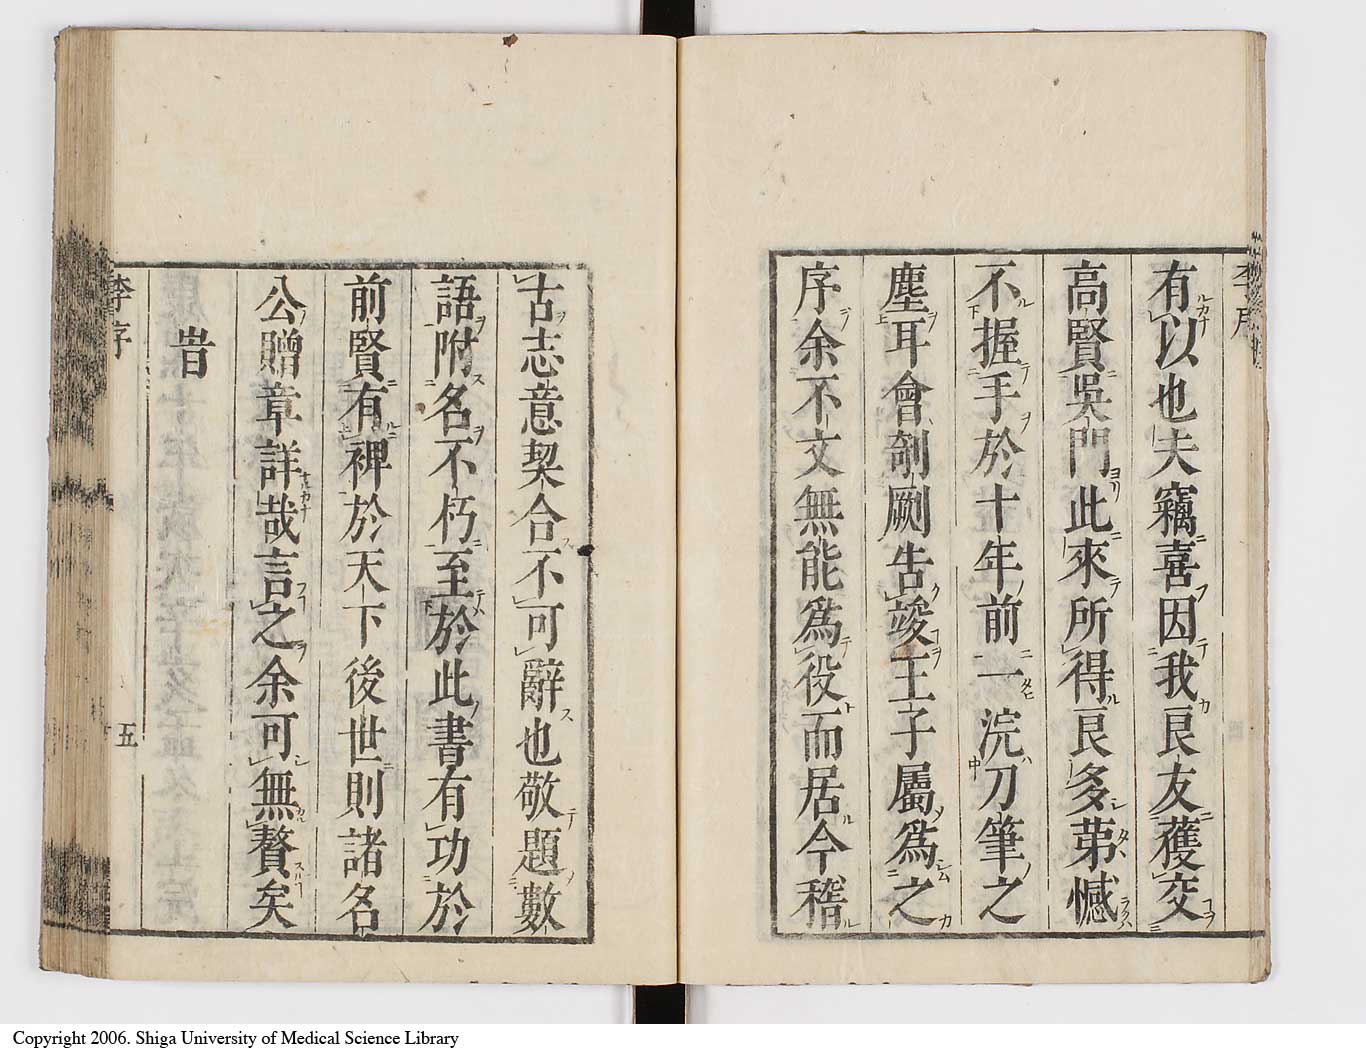 有以也夫竊喜因我良友獲交
高賢吳門此來所得良多苐憾
不握手於十年前一浣刀筆之
塵耳會剞劂告竣王子屬為之
序余不文無能為役而居今稽
古志意契合不可辭也敬題數
語附名不朽至於此書有功於
前賢有裨於天下後世則諸名
公贈章詳哉言之余可無贅矣
旹
李序
五
Copyright 2006. Shiga University of Medical Science Library